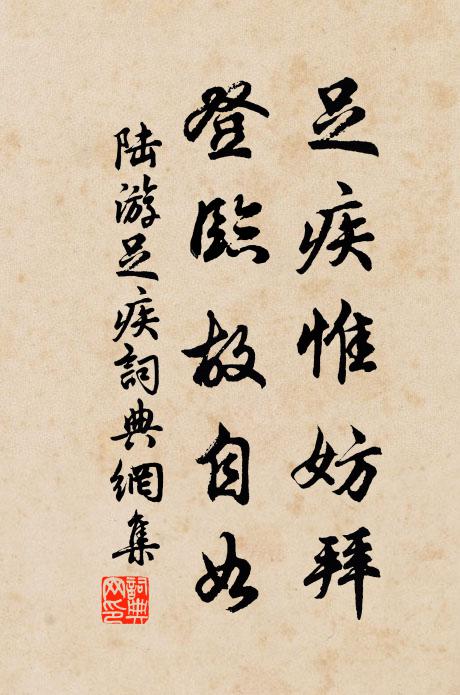 足疾惟妨拜
登臨故自如
陸游足疾詞典網集
詞典网印